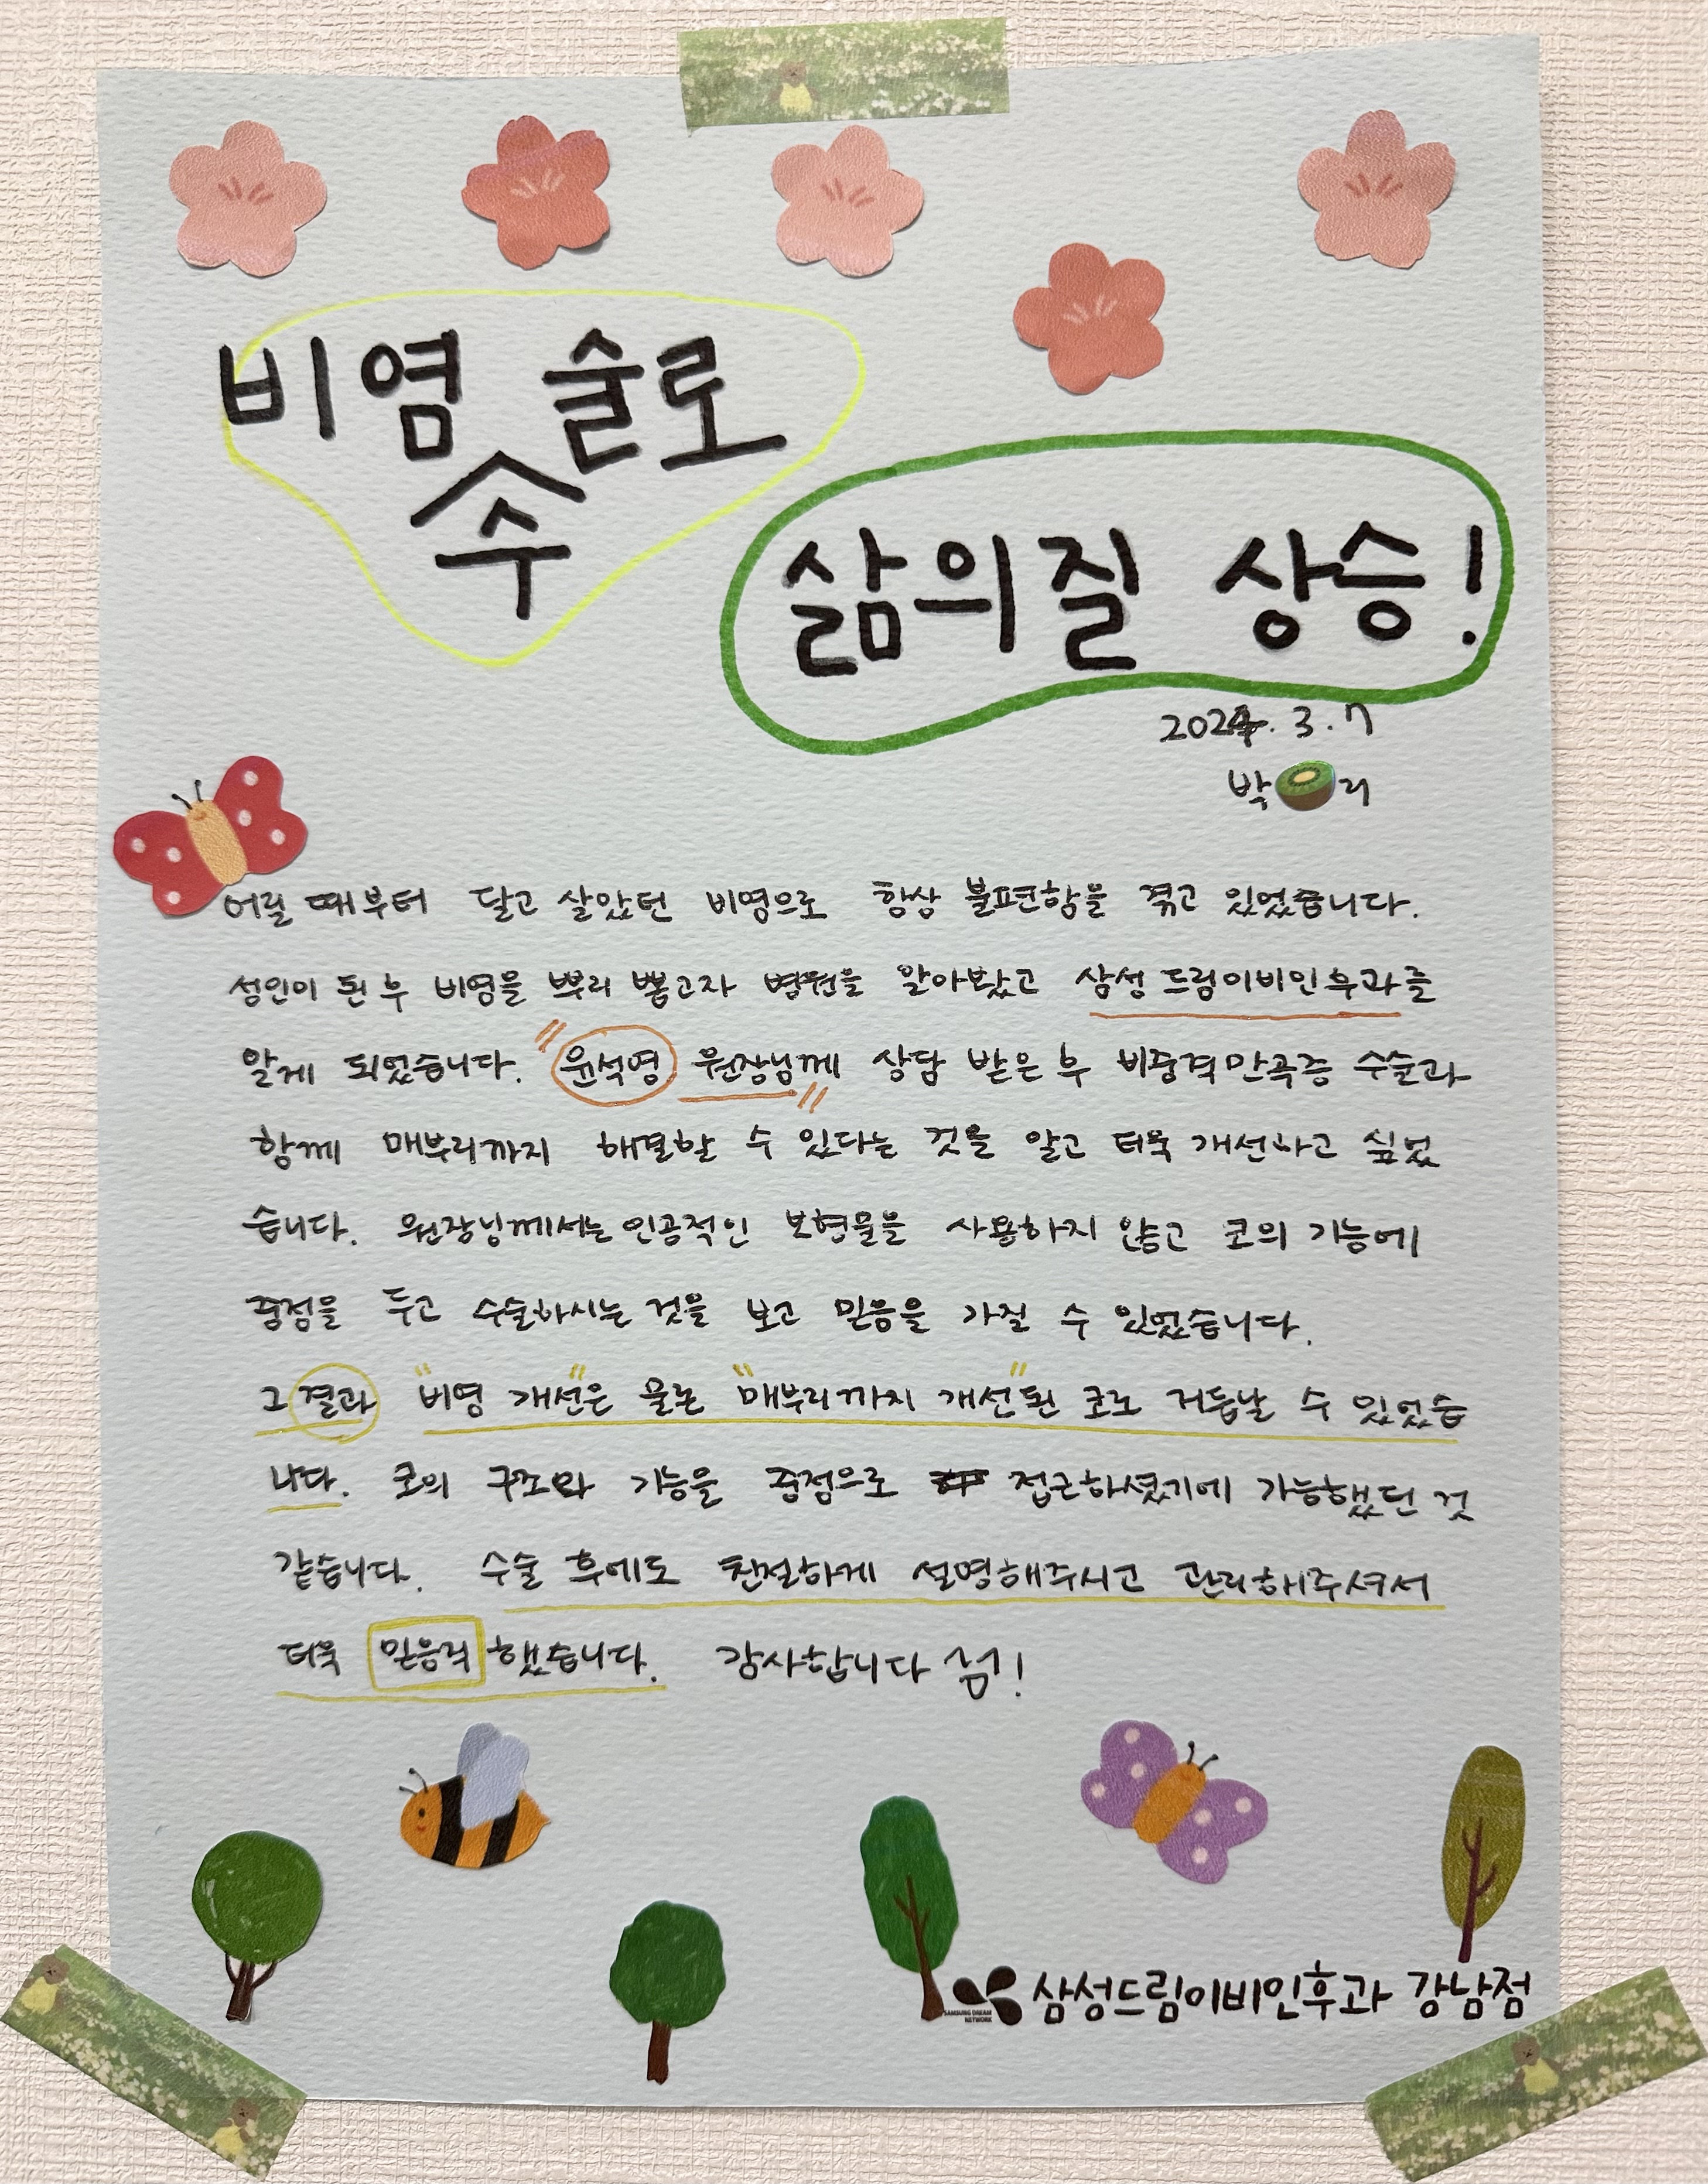 비염 수술로
삶의질 상승!
2024. 3. 7
박 리
어릴 때부터 달고 살았던 비염으로 항상 불편함을 겪고 있었습니다.
성인이 된 후 비염을 뿌리 뽑고자 병원을 알아봤고 삼성드림이비인후과를
알게 되었습니다. "윤석영 원장님께" 상담 받은 후 비중격만곡증 수술과
함께 매부리까지 해결할 수 있다는 것을 알고 더욱 개선하고 싶었
습니다. 원장님께서는 인공적인 보형물을 사용하지 않고 코의 기능에
중점을 두고 수술하시는 것을 보고 믿음을 가질 수 있었습니다.
그 결과 "비염 개선"은 물론 "매부리까지 개선"된 코로 거듭날 수 있었습
니다. 코의 구조와 기능을 중점으로 접근하셨기에 가능했던 것
같습니다. 수술 후에도 친절하게 설명해주시고 관리해주셔서
더욱 믿음직 했습니다. 감사합니다 쌤!
SAMSUNG DREAM NETWORK 삼성드림이비인후과 강남점